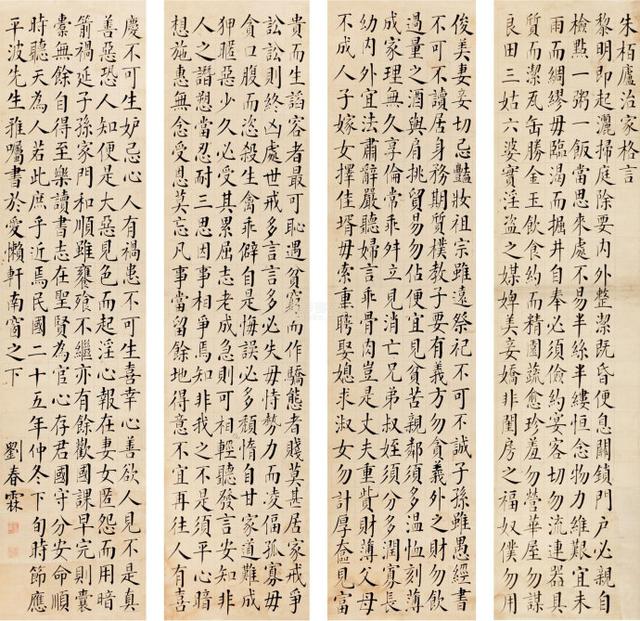 朱栢廬治家格言
黎明即起灑掃庭除要内外整潔既昏便息關鎖門户必親自
檢點一粥一飯當思來處不易半絲半縷恒念物力維艱宜未
雨而綢繆毋臨渴而掘井自奉必須儉約宴客切勿流連器具
質而潔瓦缶勝金玉飲食約而精園蔬愈珍羞勿營華屋勿謀
良田三姑六婆實淫盗之媒婢美妾嬌非閨房之福奴僕勿用
俊美妻妾切忌豔妝祖宗雖遠祭祀不可不誠子孫雖愚經書
不可不讀居身務期質樸教子要有義方勿貪義外之財勿飲
過量之酒與肩挑貿易勿佔便宜見貧苦親鄰須多温恤刻薄
成家理無久享倫常乖舛立見消亡兄弟叔姪須分多潤寡長
幼内外宜法肅辭嚴聽婦言乖骨肉豈是丈夫重貲財薄父母
不成人子嫁女擇佳壻毋索重聘娶媳求淑女勿計厚奩見富
貴而生諂容者最可恥遇貧窮而作驕態者賤莫甚居家戒爭
訟訟則終凶處世戒多言言多必失毋恃勢力而凌偪孤寡毋
貪口腹而恣殺生禽乖僻自是悔誤必多頽惰自甘家道難成
狎暱惡少久必受其累屈志老成急則可相輕聽發言安知非
人之譖愬當忍耐三思因事相爭焉知非我之不是須平心暗
想施惠無念受恩莫忘凡事當留餘地得意不宜再往人有喜
慶不可生妒忌心人有禍患不可生喜幸心善欲人見不是真
善惡恐人知便是大惡見色而起淫心報在妻女匿怨而用暗
箭禍延子孫家門和順雖饔飱不繼亦有餘歡國課早完則囊
橐無餘自得至樂讀書志在聖賢為官心存君國守分安命順
時聽天為人若此庶乎近焉民國二十五年仲冬下旬時節應
平波先生雅囑書於愛懶軒南窗之下
劉春霖